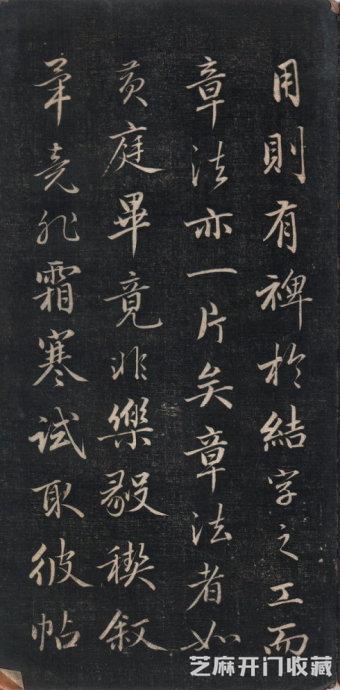 用則有裨於結字之工而
章法亦一片矣章法者如
黃庭畢竟非樂毅稧叙
畢竟非霜寒試取彼帖
芝麻开门收藏